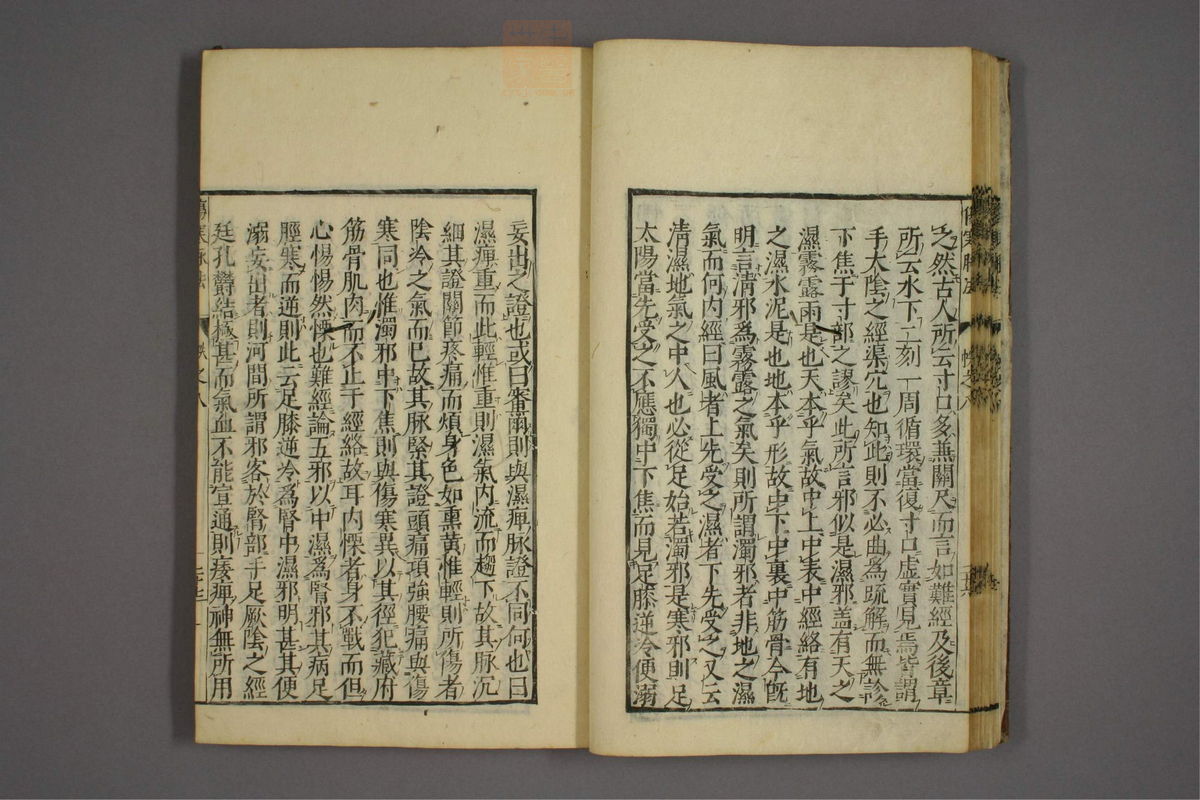 之然古人所云寸口多兼關尺而言如難經及後章
所云水下二刻一周循環當復寸口虛實見焉皆謂
手太陰之經渠穴也知此則不必曲爲疏解而無診
下焦于寸部之謬矣此所言邪似是濕邪盖有天之
濕霧露雨是也天本乎氣故中上中表中經絡有地
之濕水泥是也地本乎形故中下中裏中筋骨今旣
明言清邪爲霧露之氣矣則所謂濁邪者非地之濕
氣而何內經曰風者上先受之濕者下先受之又云
清濕地氣之中人也必從足始若濁邪是寒邪則足
太陽當先受之不應獨中下焦而見足膝逆冷便溺
妄出之證也或曰審爾則與濕痺脉證不同何也曰
濕痺重而此輕惟重則濕氣內流而趨下故其脉沉
細其證關節疼痛而煩身色如熏黃惟輕則所傷者
陰冷之氣而已故其脉緊其證頭痛項強腰痛與傷
寒同也惟濁邪中下焦則與傷寒異以其徑犯藏府
筋骨肌肉而不止于經絡故耳內慄者身不戰而但
心惕惕然慄也難經論五邪以中濕爲腎邪其病足
脛寒而逆則此云足膝逆冷爲腎中濕邪明甚其便
溺妄出者則河間所謂邪客於腎部手足厥陰之經
廷孔欝結極甚而氣血不能宣通則痿痺神無所用
傷寒脉法